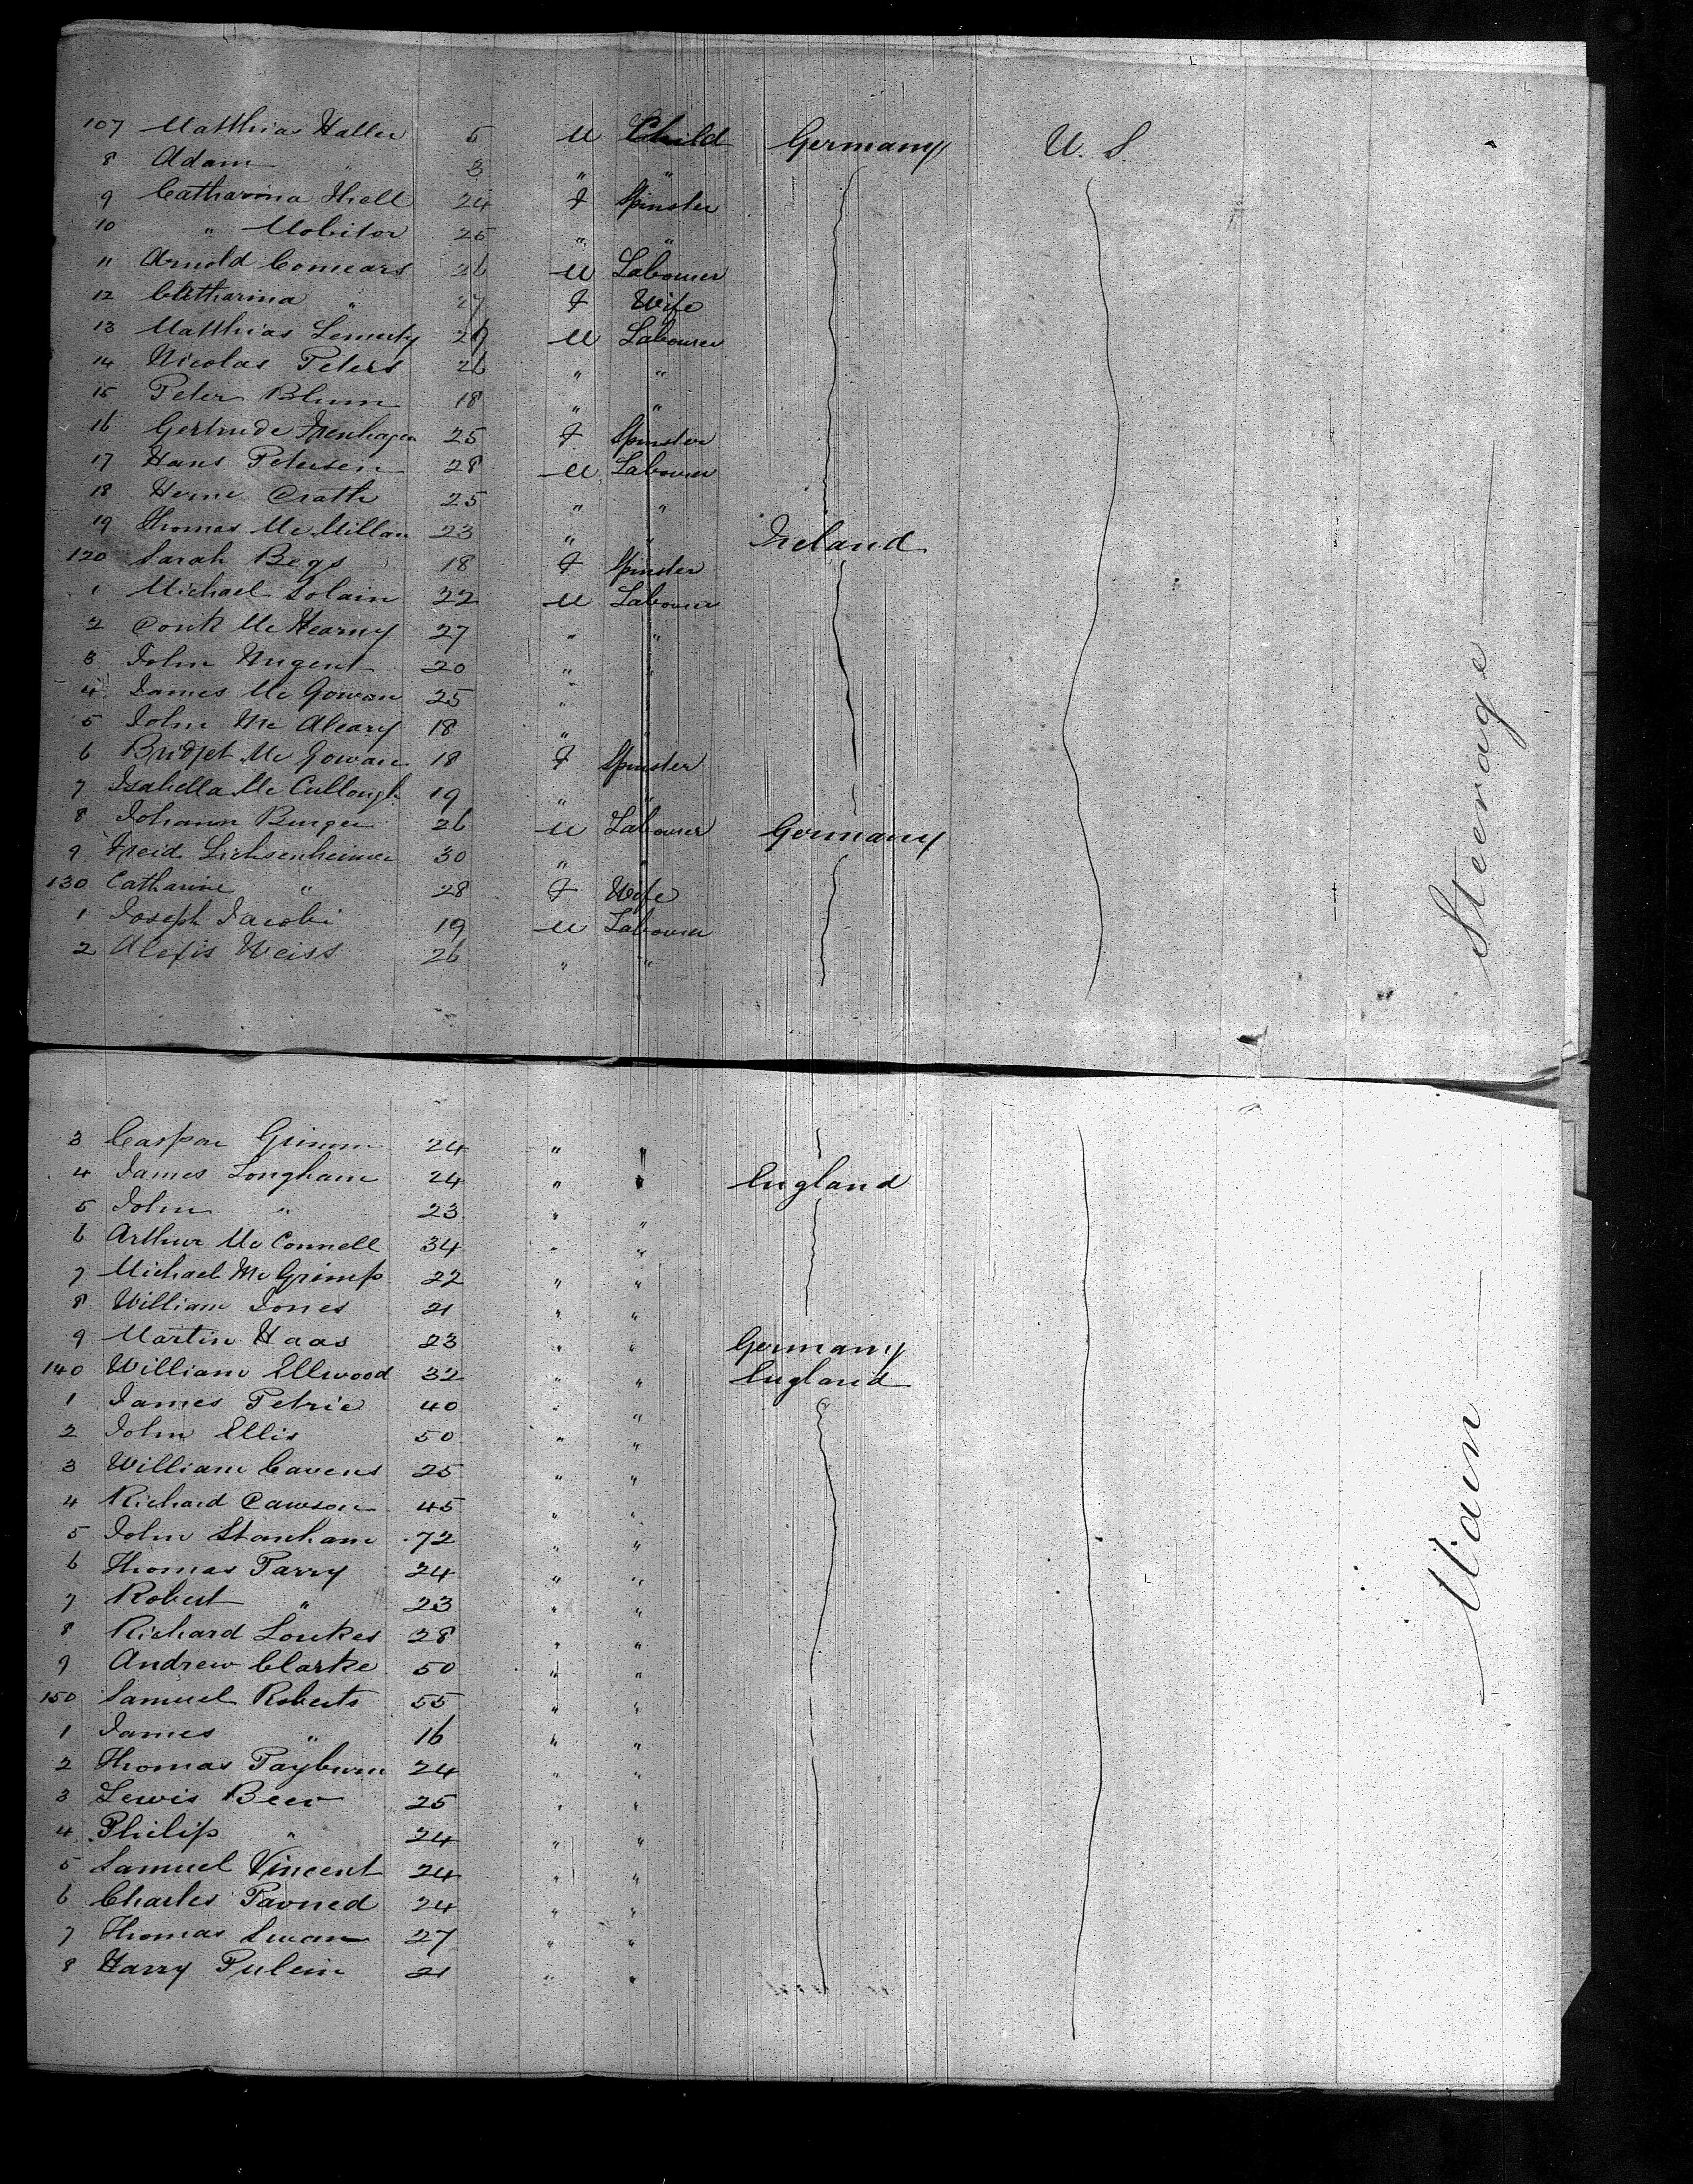 107 Matthias Haller 5 M Child Germany U. S.
8 Adam " 3 " "
9 Catharina Thell 24 F Spinster
10 " Mobitor 25 " "
11 Arnold Comears 26 M Labourer
12 Catharina " 27 F Wife
13 Matthias 29 M Labourer
14 Nicolas Peters 26 " "
15 Peter Blum 18 " "
16 Gertrude 25 F Spinster
17 Hans Petersen 28 M Labourer
18 25 " "
19 Thomas Mc Millan 23 " " Ireland
120 Sarah Begs 18 F Spinster
1 Michael Solain 22 M Labourer
2 Mc Kearny 27 " "
3 John Nugent 20 " "
4 James Mc Gowan 25 " "
5 John Mc Aleary 18 " "
6 Bridget Mc Gowan 18 F Spinster
7 Isabella Mc Cullough 19 " "
8 Johann Burger 26 M Labourer Germany
9 Freid. Lichsenheimer 30 " "
130 Catharine " 28 F Wife
1 Joseph Jacobi 19 M Labourer
2 Alexis Weiss 26 " "
Steerage
3 Caspar Grimm 24 " "
4 James Longham 24 " " England
5 John " 23 " "
6 Arthur Mc Connell 34 " "
7 Michael Mc Grimp 22 " "
8 William Jones 21 " "
9 Martin Haas 23 " " Germany
140 William Ellwood 32 " " England
1 James Petrie 40 " "
2 John Ellis 50 " "
3 William Cavens 25 " "
4 Richard Cawson 45 " "
5 John Stanham 72 " "
6 Thomas Parry 24 " "
7 Robert " 23 " "
8 Richard Loukes 28 " "
9 Andrew Clarke 50 " "
150 Samuel Roberts 55 " "
1 James " 16 " "
2 Thomas Payburn 24 " "
3 Lewis Beer 25 " "
4 Philip " 24 " "
5 Samuel Vincent 24 " "
6 Charles Pavned 24 " "
7 Thomas Swan 27 " "
8 Harry Pulein 21 " "
Main